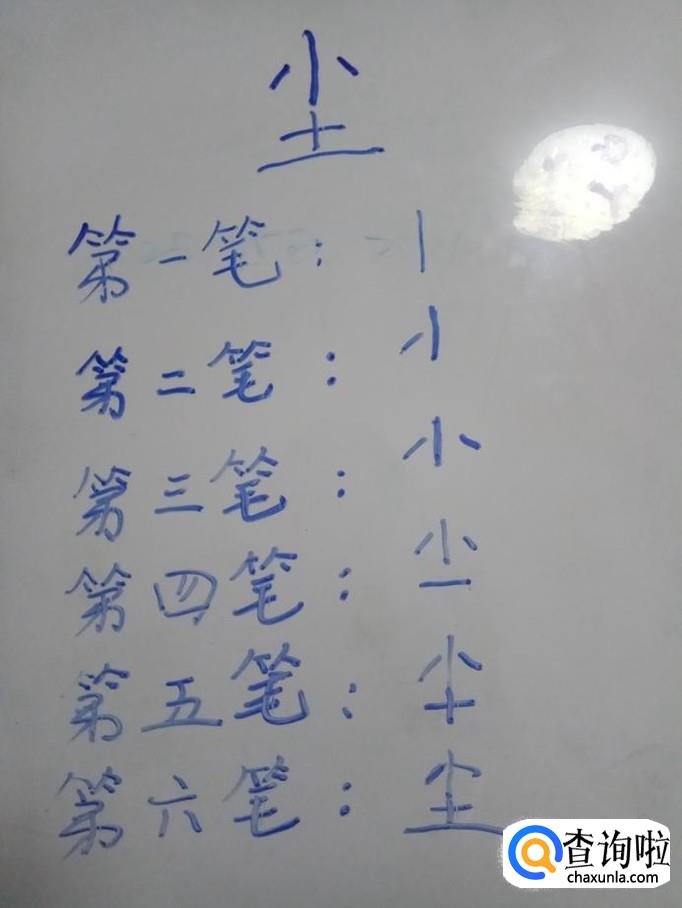 尘
第一笔: 丨
第二笔: 小
第三笔: 小
第四笔:
第五笔:
第六笔: 尘
查询啦
chaxunla.com